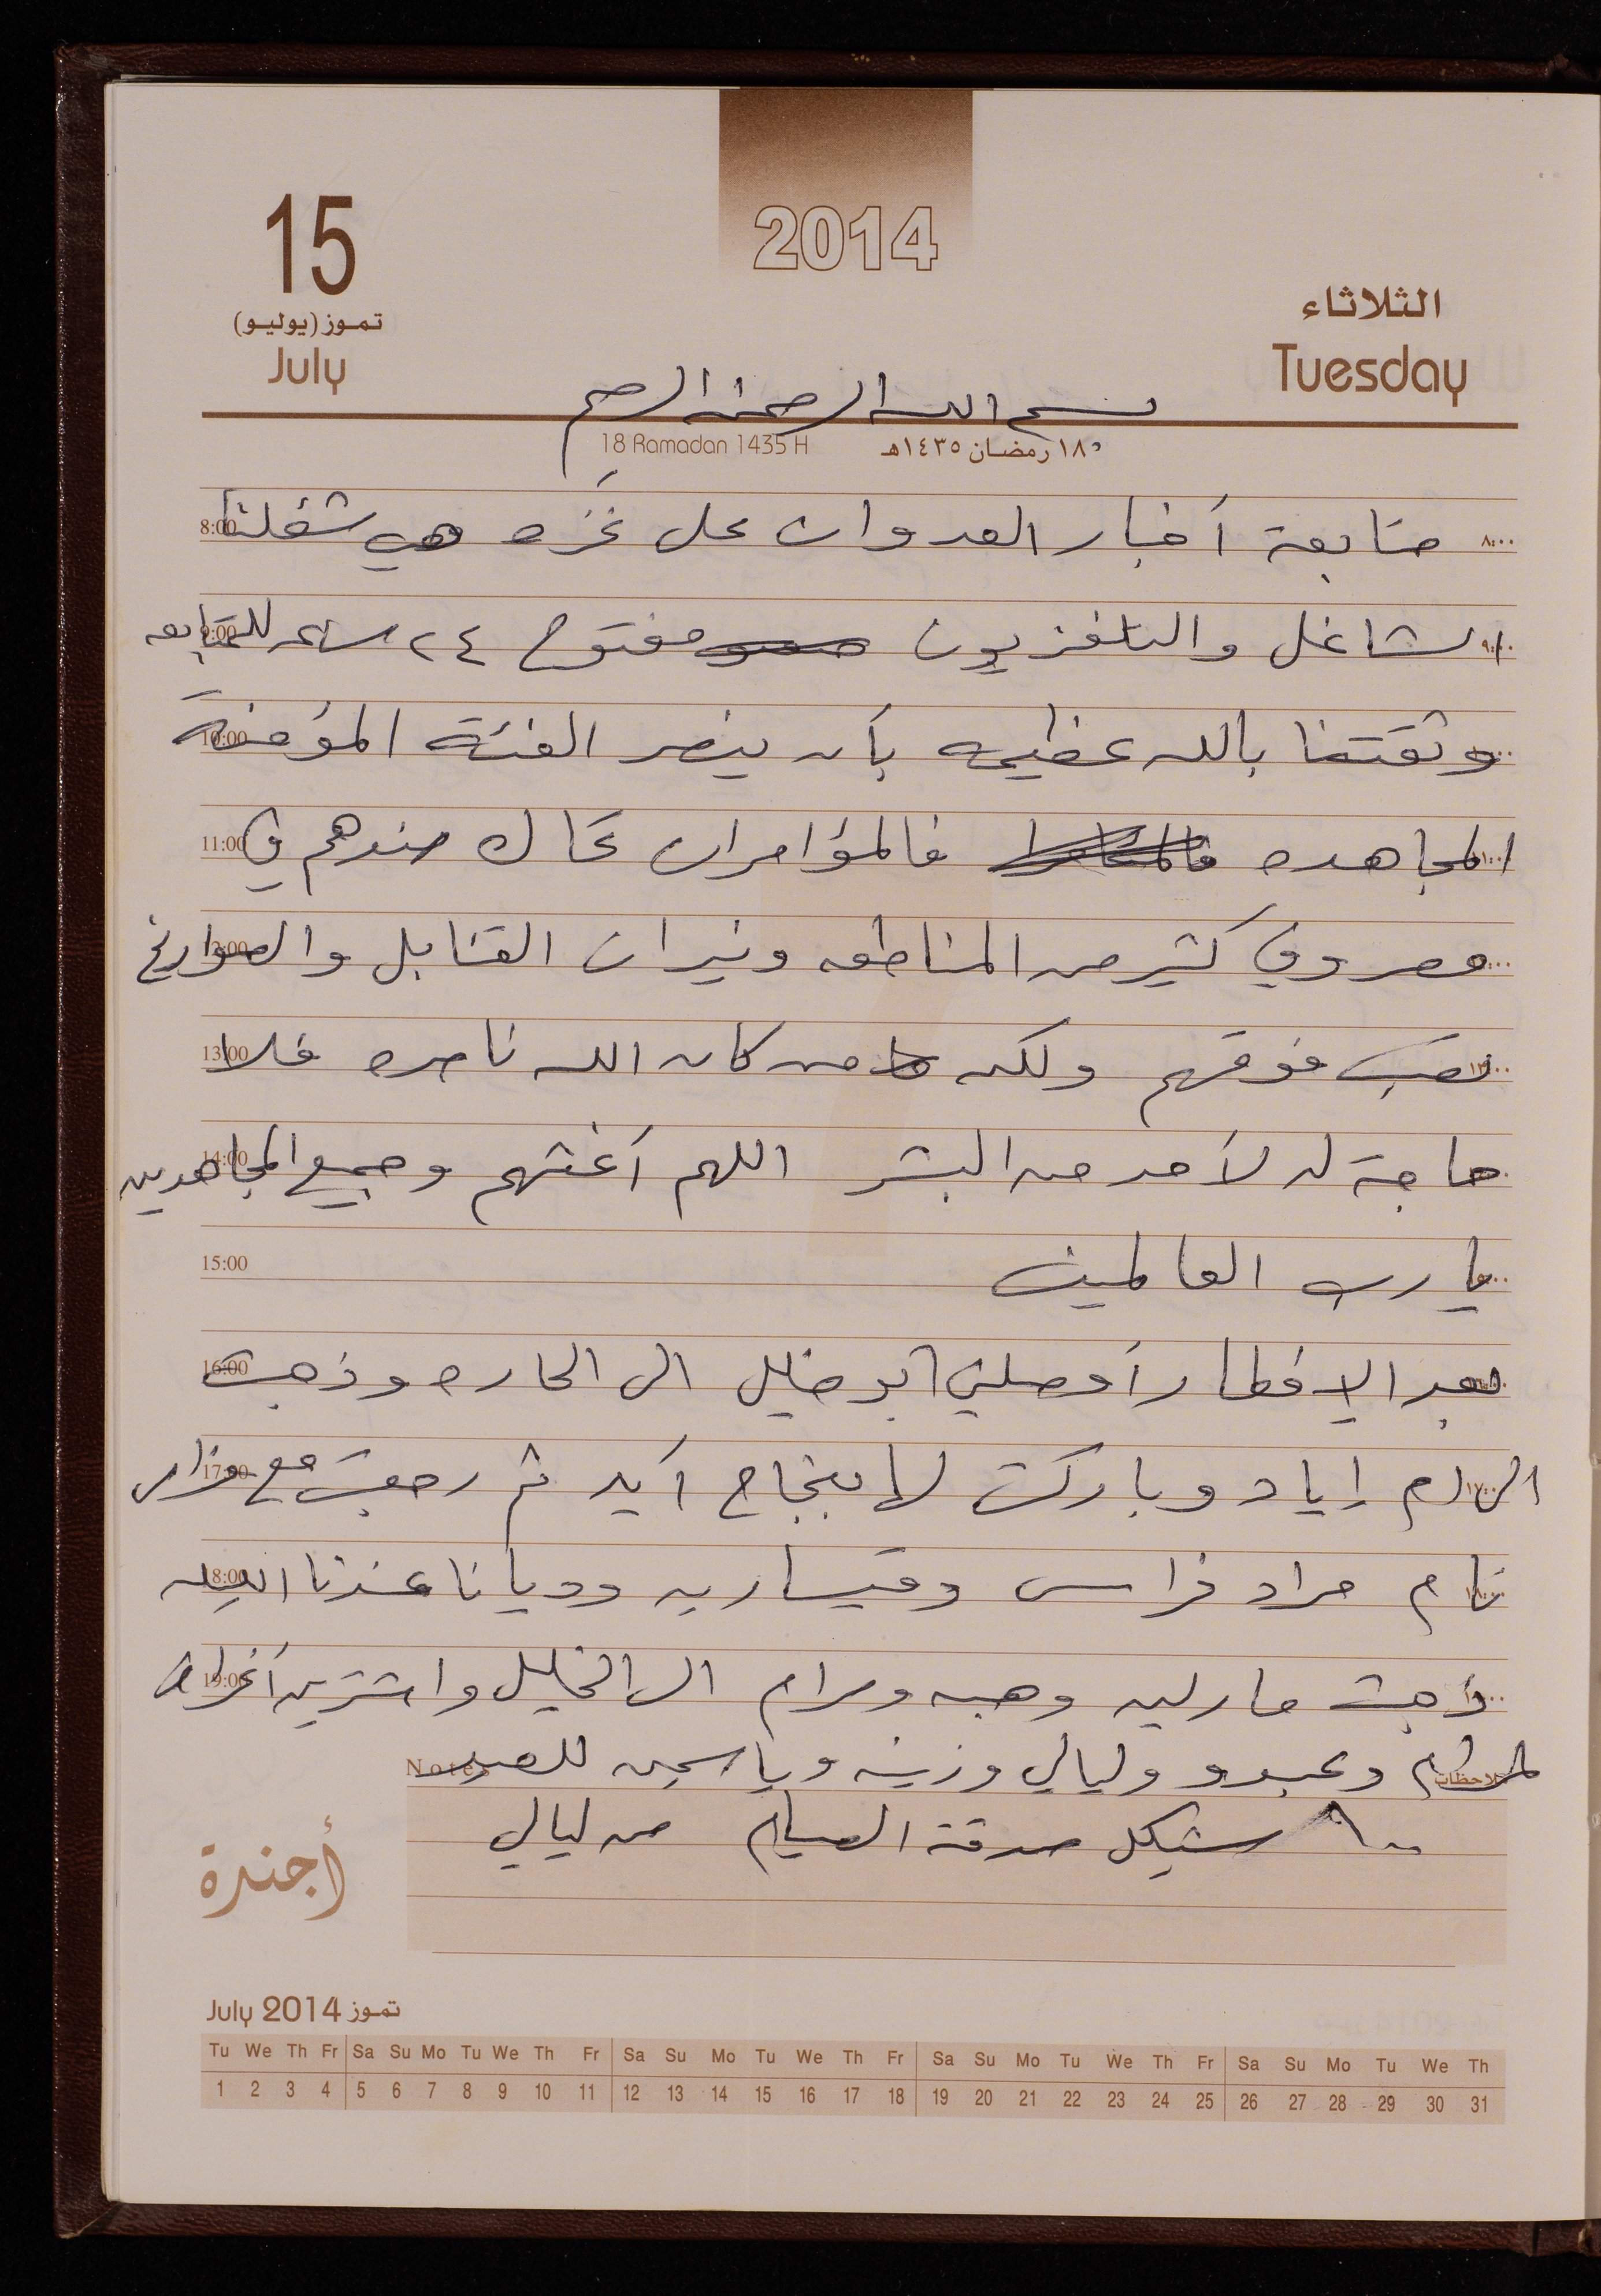 2014
15
تموز (يوليو)
July
الثلاثاء
Tuesday
بسم الله الرحمن الرحيم
18 Ramadan 1435 H
١٨ رمضان ١٤٣٥هـ
8:00 متابعة أخبار العدوان على غزه هي شغلنا ٨:٠٠
9:00 الشاغل والتلفزيون مفتوح ٢٤ ساعه للمتابعه ٩:٠٠
10:00 وثقتنا بالله عظيمه بأن ينصر الفئة المؤمنة
11:00 المجاهده فالمؤامرات تحاك ضدهم في
مصر وفي كثير من المناطق ونيران القنابل والصواريخ
13:00 تصب فوقهم ولكن من كان الله ناصره فلا
14:00 حاجة له لأحد من البشر اللهم أغثهم وجميع المجاهدين
15:00 يا رب العالمين
16:00 بعد الإفطار أوصلني أبو خليل الى الحاره وذهبت
17:00 الى ام إياد وباركت لها بنجاح آيه ثم رجعت مع
18:00 نام مراد فراس وقيساريه وديانا عندنا الليله
19:00 ذهبت مارلين وهبه ومرام الى الخليل واشترين أغراض
لمرام وعبدو وليالي وزينه وياسمين للعيد
١٠٠ شيكل صدقة الصيام من ليالي
Notes
ملاحظات
أجندة
July 2014 تموز
Tu We Th Fr Sa Su Mo Tu We Th Fr Sa Su Mo Tu We Th Fr Sa Su Mo Tu We Th Fr Sa Su Mo Tu We Th
1 2 3 4 5 6 7 8 9 10 11 12 13 14 15 16 17 18 19 20 21 22 23 24 25 26 27 28 29 30 31